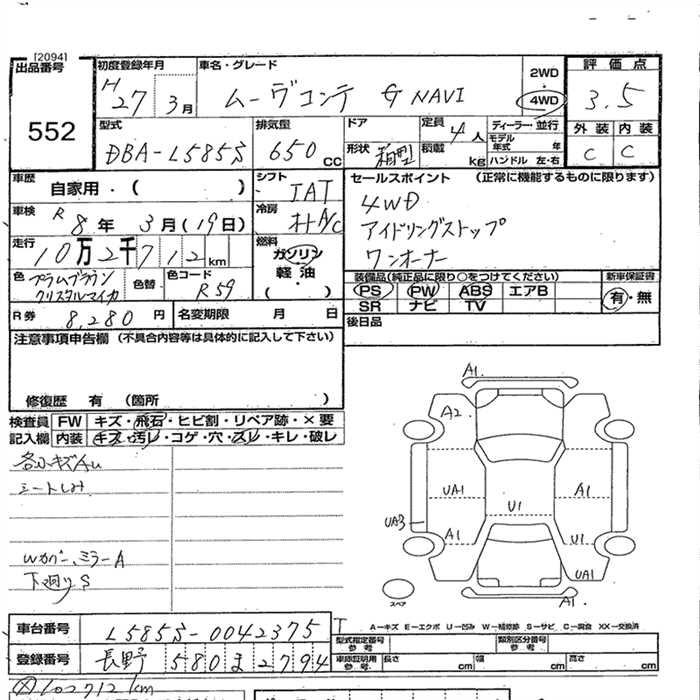 [2094]
出品番号
552
初度登録年月
H27 3月
車名・グレード
ムーヴコンテ G NAVI
2WD
・
4WD
評価点
3.5
外装 内装
C C
型式
DBA-L585S
排気量
650 CC
ドア
形状 箱型
定員 4人
積載 kg
ディーラー・並行
モデル年式 年
ハンドル 左・右
車歴
自家用・( )
シフト
IAT
車検 R8年3月(19日)
冷房
オートA/C
走行 10万2千712km
燃料
ガソリン
軽油
・
( )
色 プラムブラウンクリスタルマイカ
色替
色コード
R59
R券 8,280円
名変期限 月 日
セールスポイント (正常に機能するものに限ります)
4WD
アイドリングストップ
ワンオーナー
装備品(純正品に限り○をつけてください)
新車保証書
PS PW ABS エアB
SR ナビ TV
有・無
後日品
注意事項申告欄 (不具合内容等は具体的に記入して下さい)
修復歴 有 (箇所 )
検査員記入欄
FW キズ・飛石・ヒビ割・リペア跡・×要
内装 キズ・汚レ・コゲ・穴・スレ・キレ・破レ
各小キズAU
シートしみ
Wカバー、ミラーA
下廻りS
A1
A2
UA1
U1
A1
UA3
A1
U1
UA1
A1
スペア
T
A－キズ E－エクボ U－凹み W－補修跡 S－サビ C－腐食 XX－交換済
車台番号 L585S-0042375
登録番号 長野 580 ま 2794
型式指定番号 参考
類別区分番号 参考
車庫証明用 参考
長さ cm
幅 cm
高さ cm
102712km